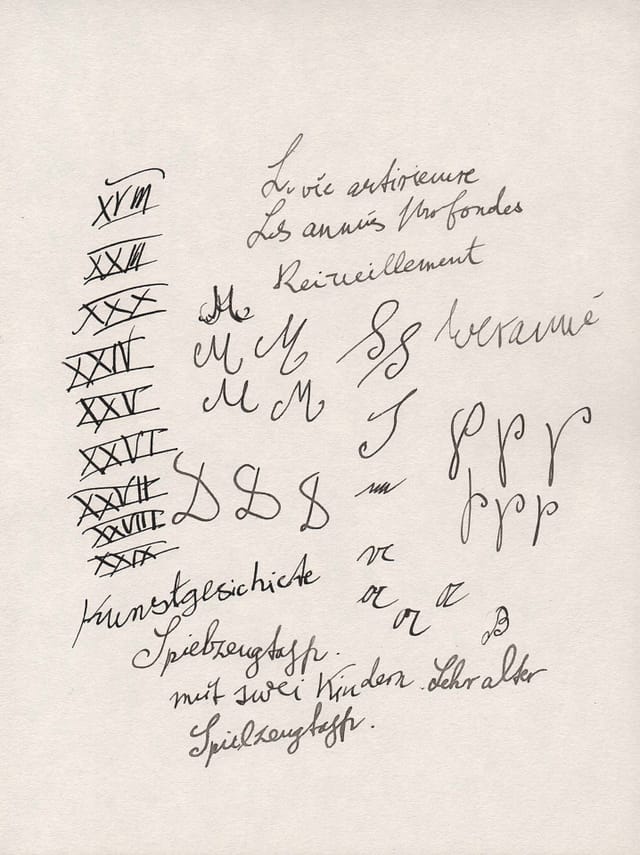 XVIII
XXIII
XXX
XXIV
XXV
XXVI
XXVII
XXVIII
XXIX
La vie antérieure
Les années profondes
Recueillement
M
M M
M M
S S
S
D D D
p p p
p p p
B
Kunstgesichicte
Spielzeug
mit zwei Kindern. Sehr alter
Spielzeug